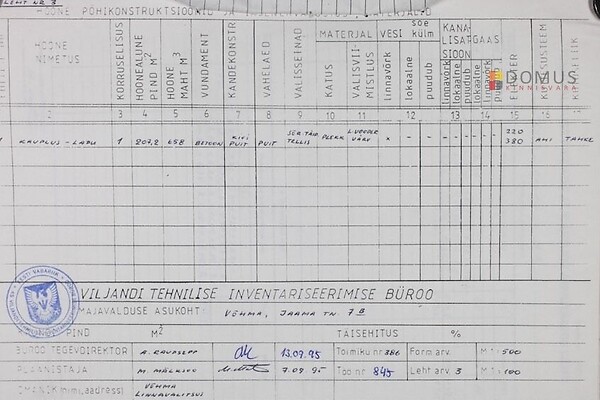 LEHT NR 3
HOONE PÕHIKONSTRUKTSIOONID JA
HOONE NIMETUS
KORRUSELISUS
HOONEALUNE PIND M²
HOONE MAHT M³
VUNDAMENT
KANDEKONSTR
VAHELAED
VÄLISSEINAD
MATERJAL
KATUS
VÄLISVIIMISTLUS
VESI soe külm
linnavõrk
lokaalne
puudub
KANALISATSIOON
linnavõrk
lokaalne
puudub
GAAS
lokaalne
linnavõrk
DOMUS
KINNISVARA
2 3 4 5 6 7 8 9 10 11 12 13 14 15 16 17
KAUPLUS - LADU 1 207,2 658 BETOON KIVI PUIT PUIT TELLIS PLEKK VÄRV x - - - - - - - 220 380 AHI TAHKE
VILJANDI TEHNILISE INVENTARISEERIMISE BÜROO
MAJAVALDUSE ASUKOHT: VÕHMA, JAAMA TN. 7B
PIND M² TÄISEHITUS %
BÜROO TEGEVDIREKTOR A. RAUDSEPP 13.09.95 Toimiku nr 386 Form arv. M 1: 500
PLAANISTAJA M MÄLKSOV 7.09.95 Töö nr 845 Leht arv. 3 M 1: 100
OMANIK (nimi, aadress) VÕHMA LINNAVALITSUS